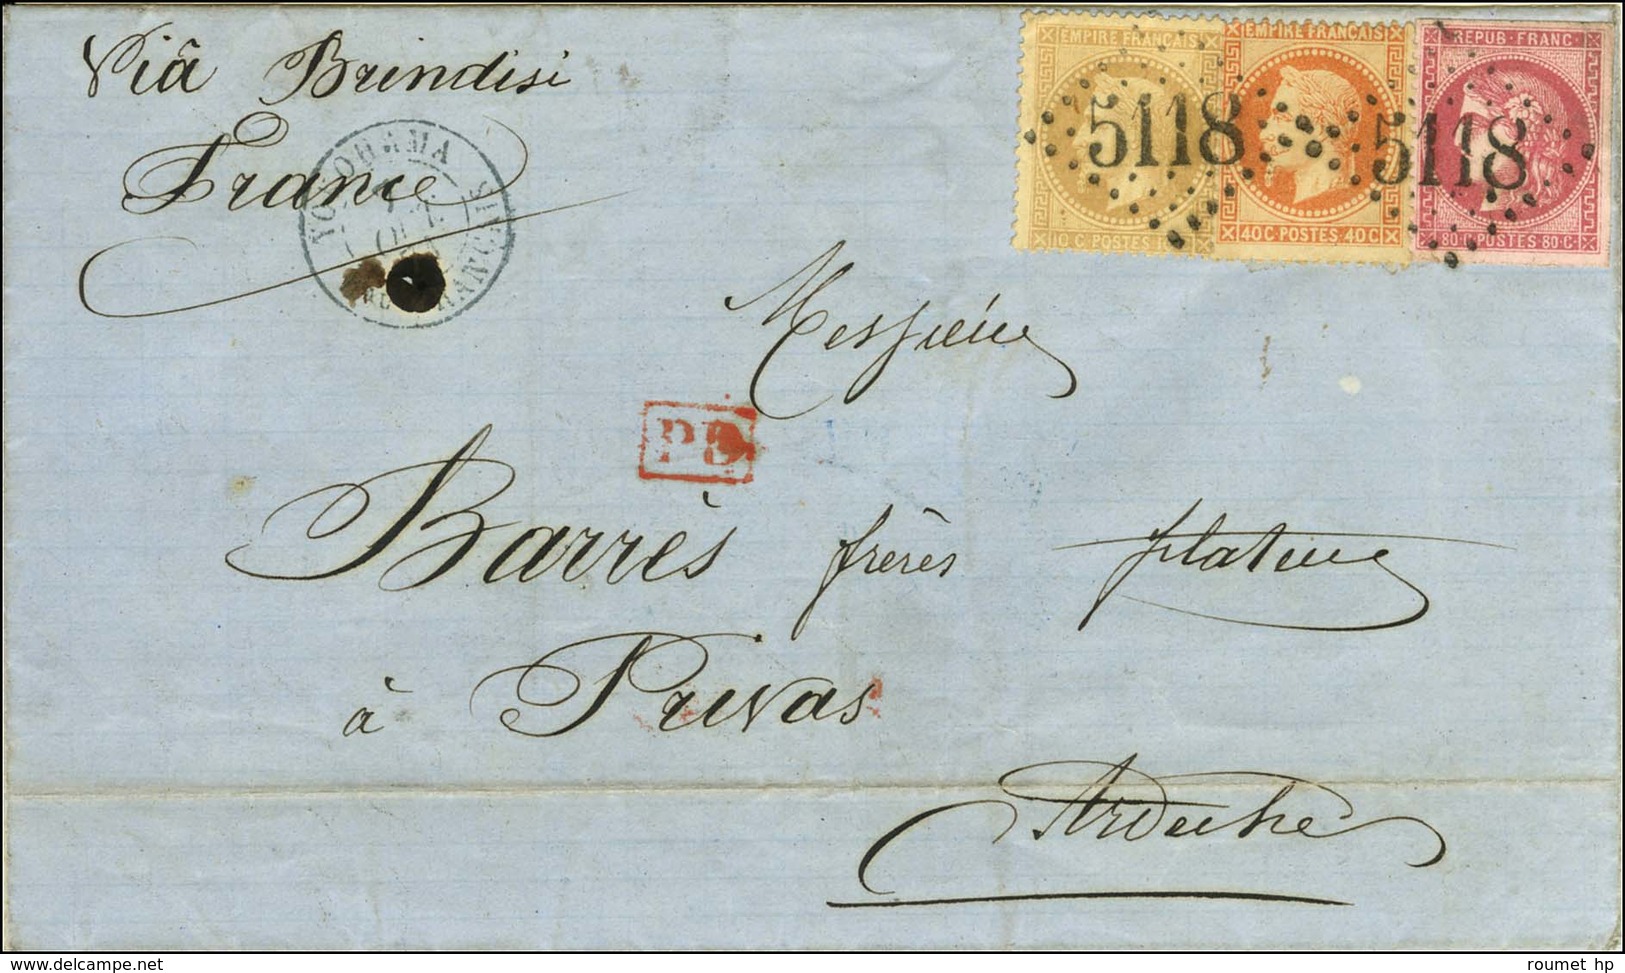 Viâ Brindisi
France
YOKOHAMA
Bau FRANÇAIS
EMPIRE FRANÇAIS
10 C POSTES 10
EMPIRE FRANÇAIS
40 C. POSTES. 40 C.
REPUB. FRANC.
80 C. POSTES 80 C.
5118
5118
Messieurs
PD
Barrès frères
à Privas
Ardèche
roumet hp